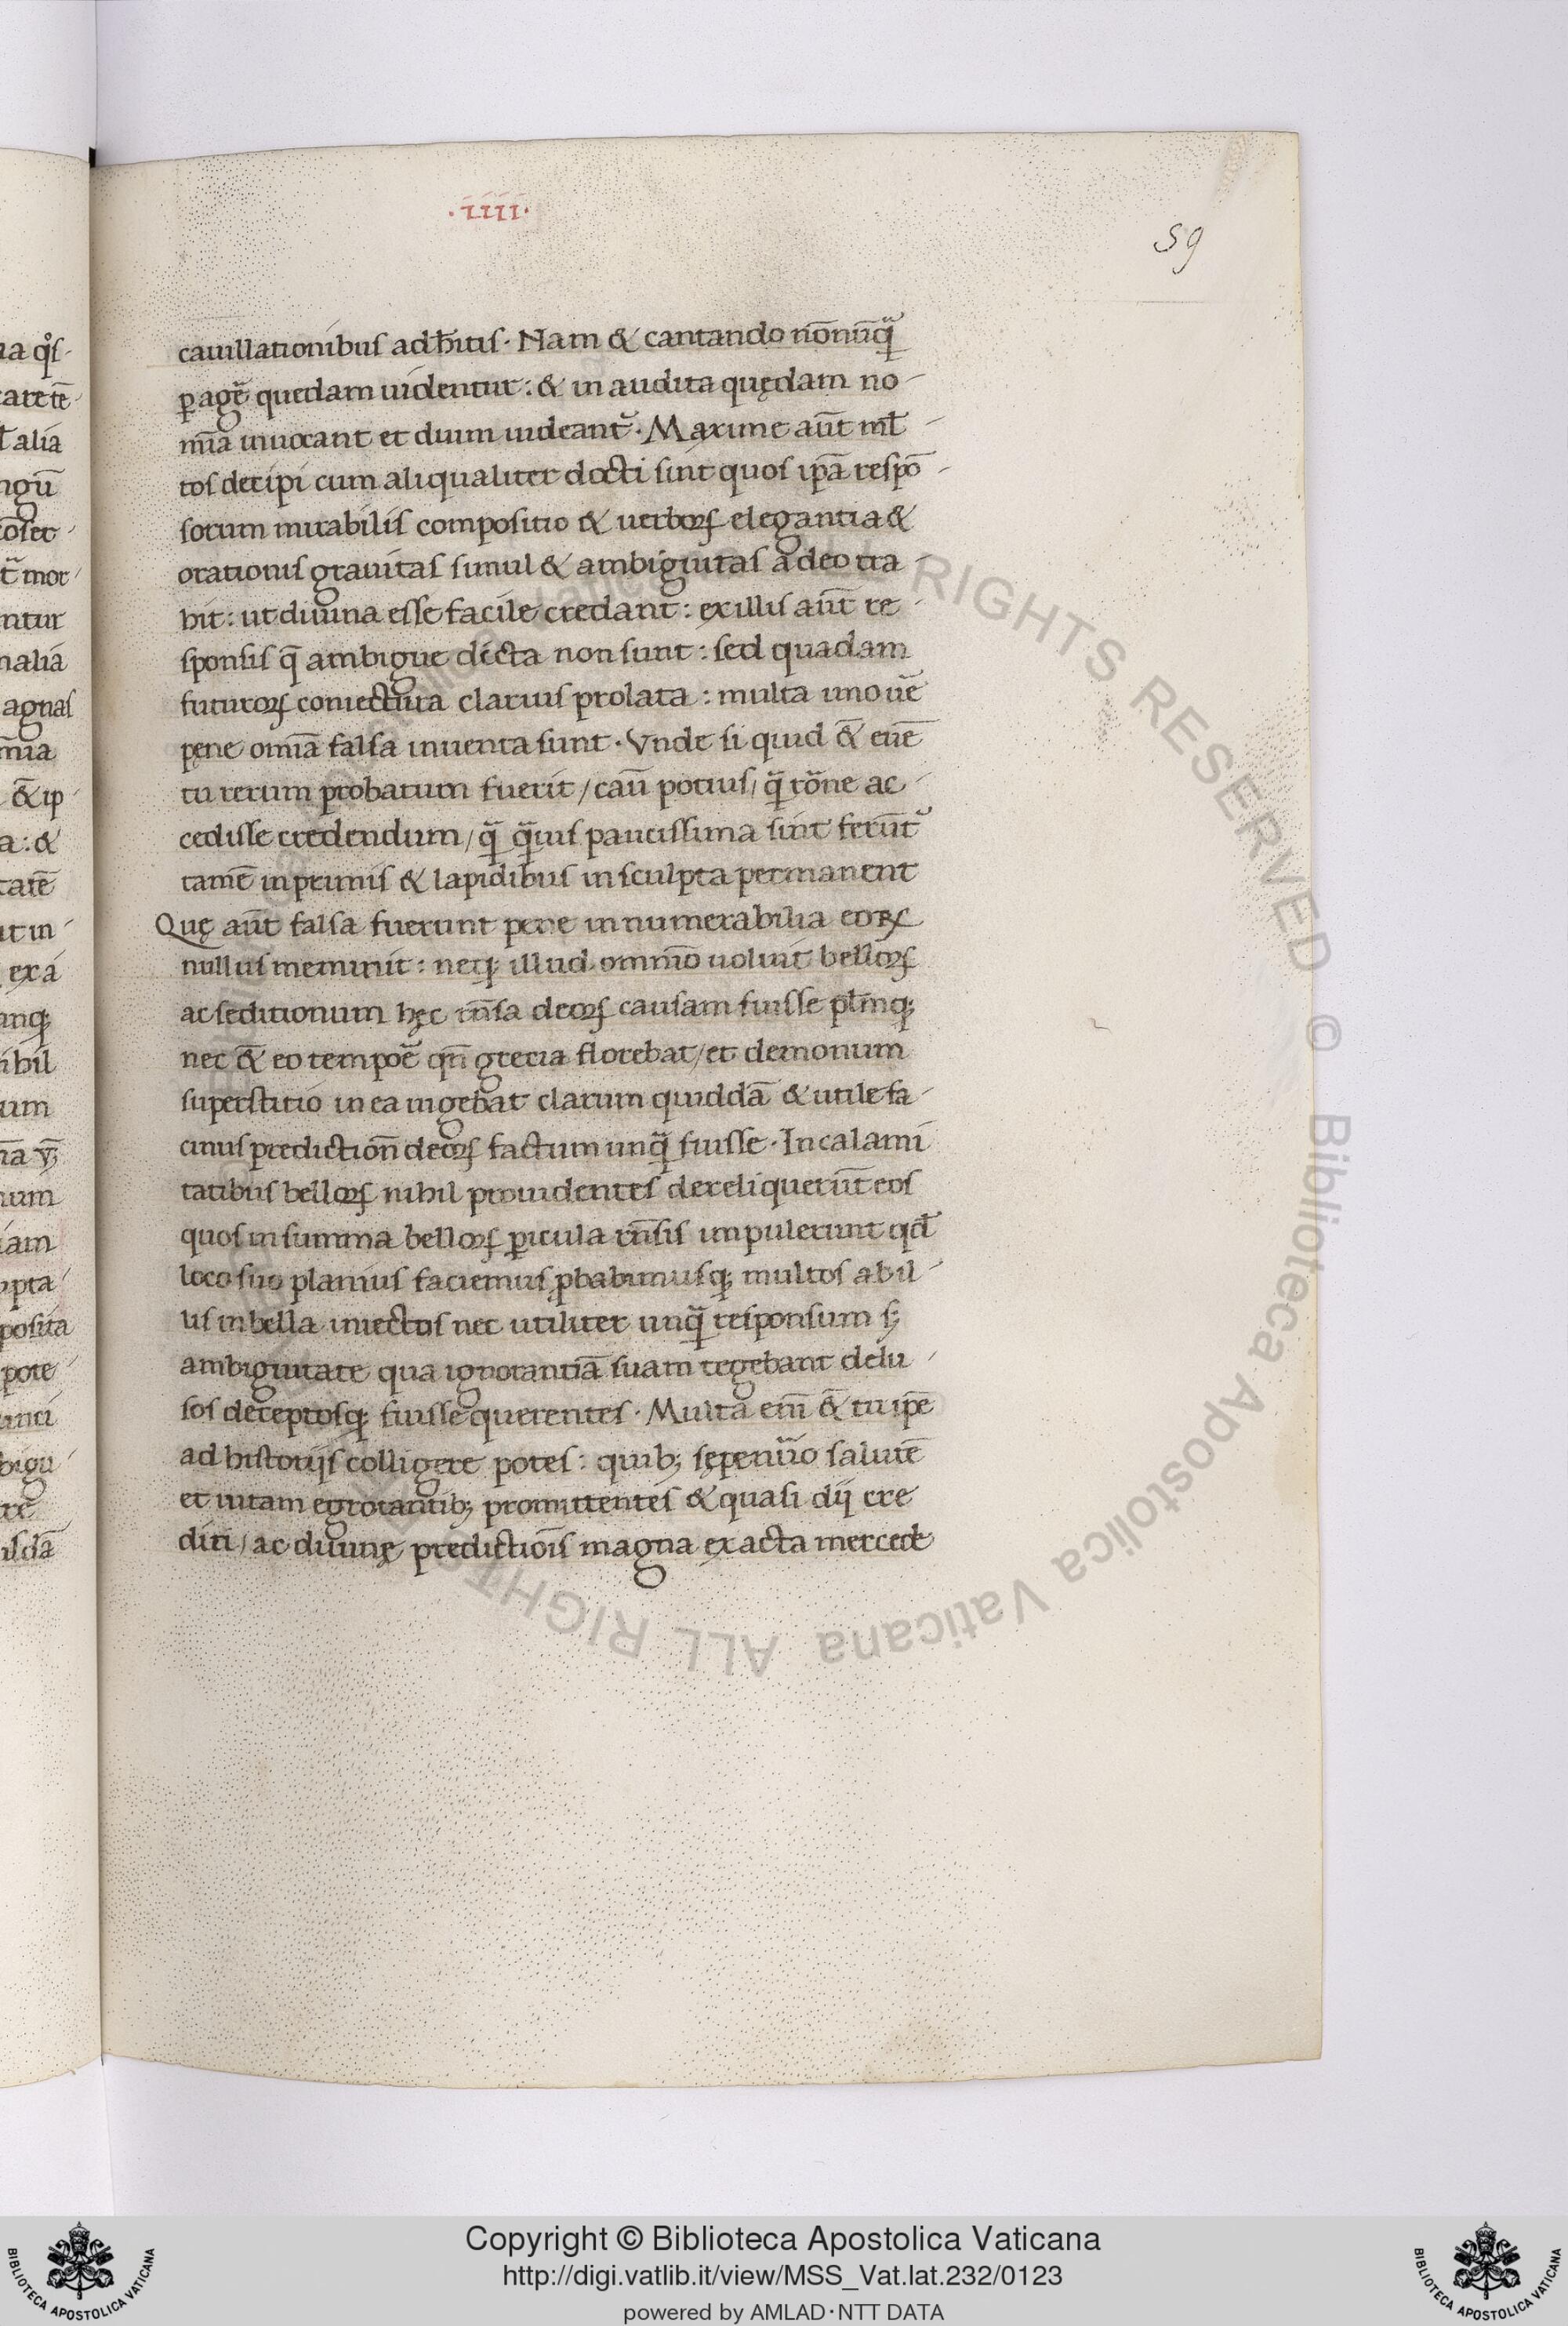 ·iiii·
59
cauillationibus adh̄itis· Nam & cantando nōnūq̄
ꝑagē quedam uidentur: & in audita quędam no-
mīa inuocant et diuini uideant᷑· Maxime aūt ml̄-
tos decipi cum aliqualiter docti sint quos ip̄a respō-
sorum mirabilis compositio & uerborꝝ elegantia &
orationis grauitas simul & ambiguitas adeo tra-
hit: ut diuina esse facile credant: ex illis aūt re-
sponsis q̄ ambigue dicta non sunt: sed quadam
futurorꝝ coniectura clarius prolata: multa uno uē
pęne omīa falsa inuenta sunt· Vnde si quid &̄ euē
tu rerum probatum fuerit/ casū potius/ q̄ rōne ac-
cedisse credendum/ q̄ q̄uis paucissima sint ferūt᷑
tamē inprimis & lapidibus insculpta permanent
Quę aūt falsa fuerunt pene innumerabilia eorꝝ
nullus meminit: neqꝫ illud omnīo uoluit bellorꝝ
ac seditionum hęc rn̄sa deorꝝ causam fuisse pl̄rınqꝫ
nec &̄ eo tempoē qn̄ grecia florebat/ et demonum
superstitio in ea uigebat clarum quiddā & utile fa-
cinus prediction̄ deorꝝ factum unq̄ fuisse· In calami
tatibus bellorꝝ nihil prouidentes dereliquerūt eos
quos in summa bellorꝝ ꝑicula rn̄sis impulerunt qd̄
loco suo planius faciemus ꝓbabimusqꝫ multos abil-
lis in bella iniectos nec utiliter unq̄ responsum sꝫ
ambiguitate qua ignorantiā suam tegebant delu-
sos deceptosqꝫ fuisse querentes· Multa em̄ &̄ tu ip̄e
ad historijs colligere potes: quibꝫ sępenūo salutē
et uitam egrotantibꝫ promittentes & quasi dij cre
diti/ ac diuinę predictiōis magna exacta mercede
Copyright © Biblioteca Apostolica Vaticana
http://digi.vatlib.it/view/MSS_Vat.lat.232/0123
powered by AMLAD·NTT DATA